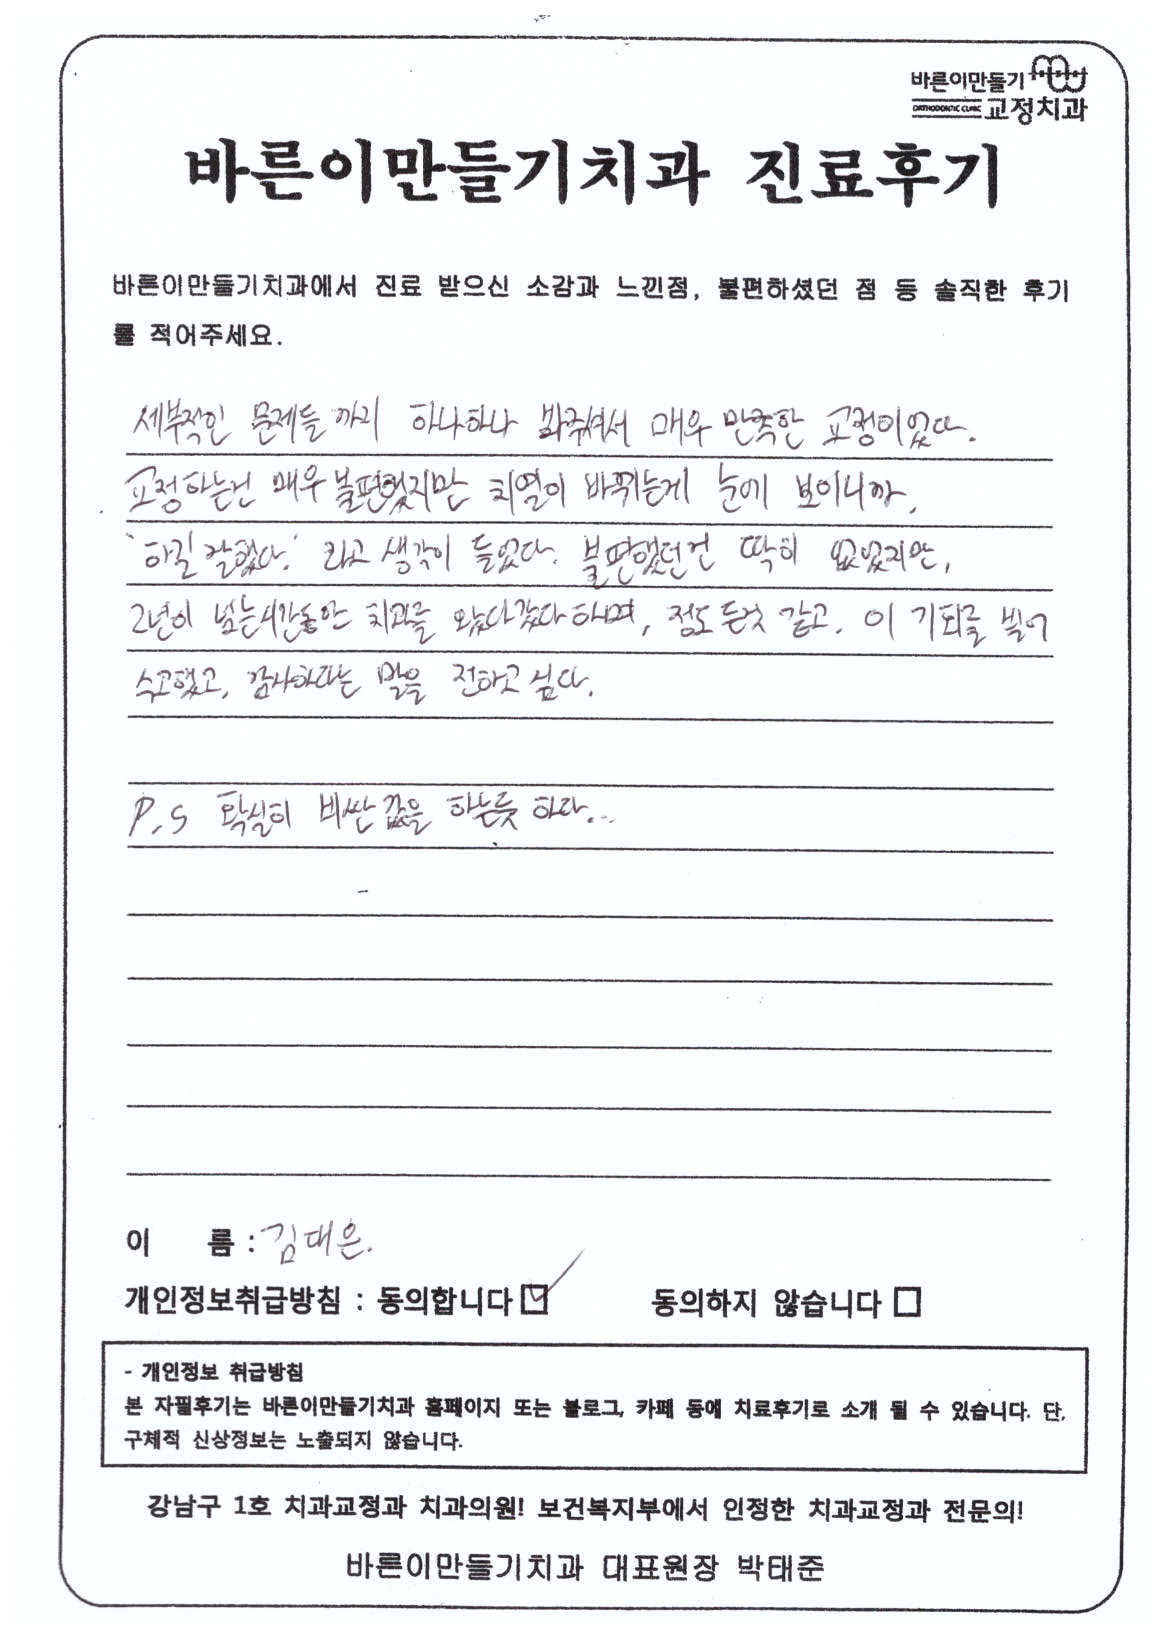 바른이만들기
ORTHODONTIC CLINIC 교정치과
바른이만들기치과 진료후기
바른이만들기치과에서 진료 받으신 소감과 느낀점, 불편하셨던 점 등 솔직한 후기
를 적어주세요.
세부적인 문제들까지 하나하나 봐주셔서 매우 만족한 교정이었다.
교정하는건 매우 불편했지만 치열이 바뀌는게 눈에 보이니까,
'하길 잘했다.' 라고 생각이 들었다. 불편했던건 딱히 없었지만,
2년이 넘는시간동안 치과를 왔다갔다하며, 정도 든것 같고. 이 기회를 빌어
수고했고, 감사하다는 말을 전하고 싶다.
P.S 확실히 비싼값을 하는듯 하다...
이 름 : 김대은.
개인정보취급방침 : 동의합니다 동의하지 않습니다
- 개인정보 취급방침
본 자필후기는 바른이만들기치과 홈페이지 또는 블로그, 카페 등에 치료후기로 소개 될 수 있습니다. 단,
구체적 신상정보는 노출되지 않습니다.
강남구 1호 치과교정과 치과의원! 보건복지부에서 인정한 치과교정과 전문의!
바른이만들기치과 대표원장 박태준